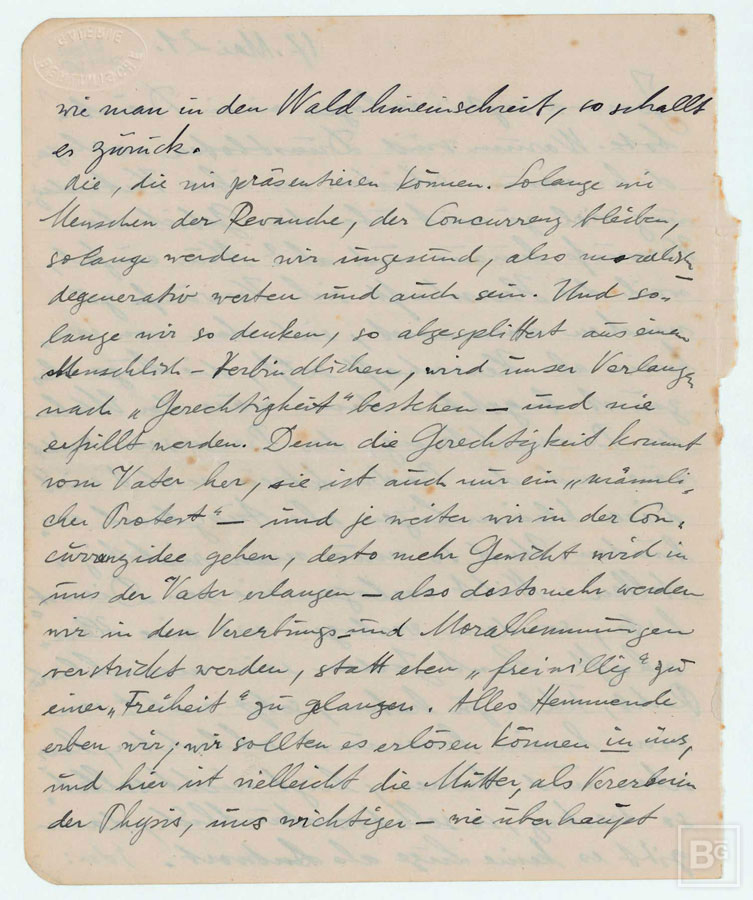 wie man in den Wald hineinschreit, so schallt
es zurück.
die, die wir präsentieren können. Solange wir
Menschen der Revanche, der Concurrenz bleiben,
solange werden wir ungesund, also moralisch
degenerativ werten und auch sein. Und so-
lange wir so denken, so abgesplittert aus einem
Menschlich-Verbindlichen, wird unser Verlangen
nach „Gerechtigkeit“ bestehen – und nie
erfüllt werden. Denn die Gerechtigkeit kommt
vom Vater her, sie ist auch nur ein „männli-
cher Protest“ – und je weiter wir in der Con-
currenzidee gehen, desto mehr Gewicht wird in
uns der Vater erlangen – also destomehr werden
wir in den Vererbungs- und Moralhemmungen
verstrickt werden, statt eben „freiwillig“ zu
einer „Freiheit“ zu gelangen. Alles Hemmende
erben wir; wir sollten es erlösen können in uns,
und hier ist vielleicht die Mutter, als Vererberin
der Physis, uns wichtiger – wie überhaupt
BG